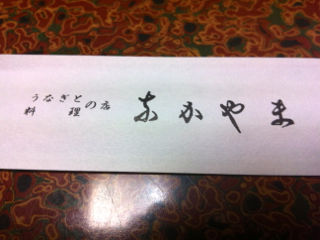 うなぎと料理の店
なかやま